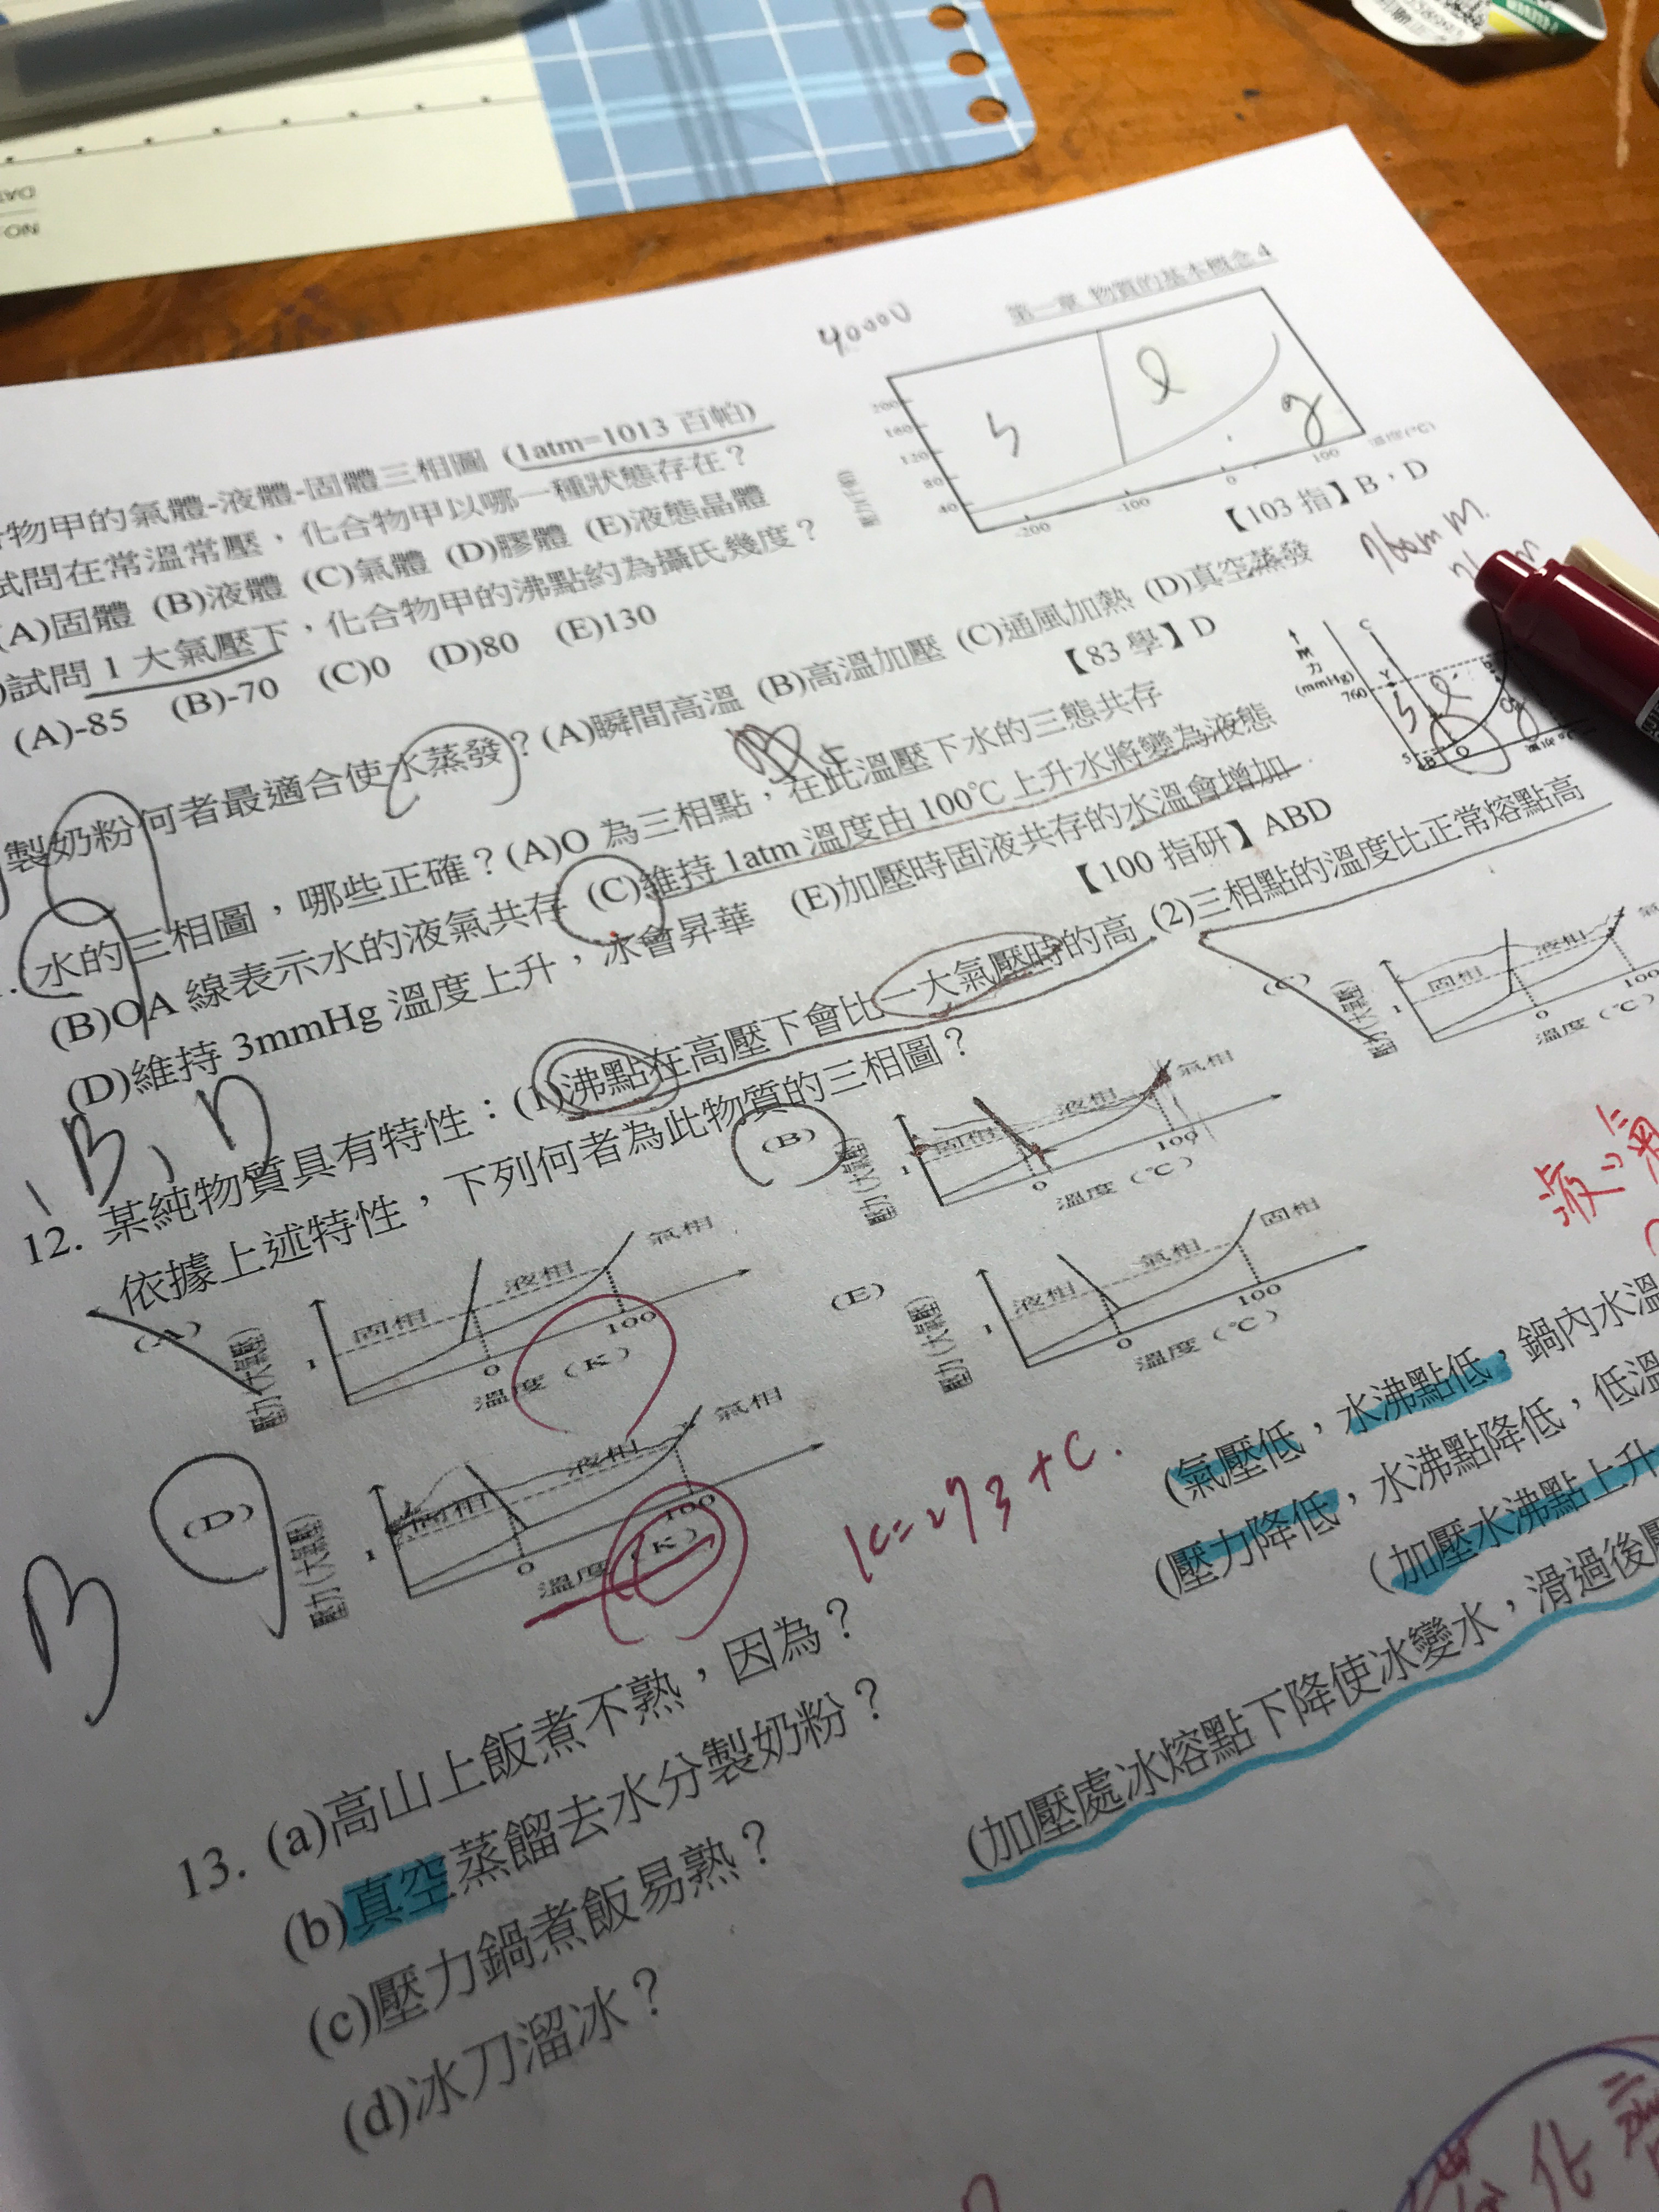 DA
NO
第一章 物質的基本概念 4
40000
合物甲的氣體-液體-固體三相圖 (1atm=1013 百帕)
試問在常溫常壓，化合物甲以哪一種狀態存在？
(A)固體 (B)液體 (C)氣體 (D)膠體 (E)液態晶體
)試問 1 大氣壓下，化合物甲的沸點約為攝氏幾度？
(A)-85 (B)-70 (C)0 (D)80 (E)130
200
160
120
80
40
-200 -100 0 100 溫度(℃)
s l g
【103 指】B、D
製奶粉何者最適合使水蒸發？(A)瞬間高溫 (B)高溫加壓 (C)通風加熱 (D)真空蒸發
【83 學】D
水的三相圖，哪些正確？(A)O 為三相點，在此溫壓下水的三態共存
(B)OA 線表示水的液氣共存 (C)維持 1atm 溫度由 100℃上升水將變為液態
(D)維持 3mmHg 溫度上升，冰會昇華 (E)加壓時固液共存的水溫會增加
【100 指研】ABD
壓力
(mmHg)
760
C
Y
B
O
B, D
12. 某純物質具有特性：(1)沸點在高壓下會比一大氣壓時的高 (2)三相點的溫度比正常熔點高
依據上述特性，下列何者為此物質的三相圖？
(A) 壓力(大氣壓) 1 固相 液相 氣相 0 100 溫度（K）
(B) 壓力(大氣壓) 1 固相 液相 氣相 0 100 溫度（℃）
(C) 壓力(大氣壓) 1 固相 液相 氣 0 100 溫度（℃）
(D) 壓力(大氣壓) 1 固相 液相 氣相 0 100 溫度（K）
(E) 壓力(大氣壓) 1 液相 氣相 固相 0 100 溫度（℃）
B
K=273+C.
13. (a)高山上飯煮不熟，因為？
(氣壓低，水沸點低，鍋內水溫
(b)真空蒸餾去水分製奶粉？
(壓力降低，水沸點降低，低溫
(c)壓力鍋煮飯易熟？
(加壓水沸點上升
(d)冰刀溜冰？
(加壓處冰熔點下降使冰變水，滑過後壓
化